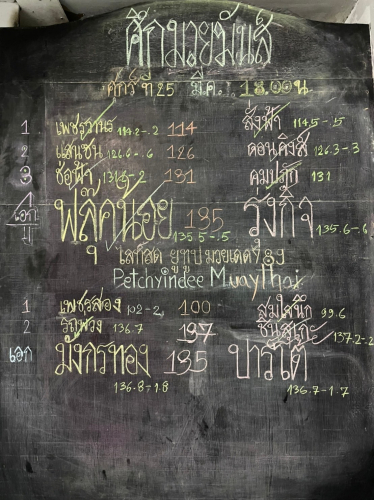 ศึกมวยมันส์
ศุกร์ ที่ 25 มี.ค. 18.00น.
1 เพชรภูธร 114.2-.2 114 สิงฟ้า 114.5-.5
2 แสนชัน 126.6-.6 126 ดอนคิงส์ 126.3-3
3 ช่อฟ้า 131.5-2 131 คมปฏัก 131
เอก พลุ๊คน้อย 135.5-.5 135 รุ่งกิจ 135.6-.6
ไลท์สด ยูทูป มวยเด็ด789
Petchyindee MuayThai
1 เพชรสอง 102-2 100 สมใจนึก 99.6
2 วิถุพวง 136.7 137 137.2-2
เอก มังกรทอง 136.8-1.8 135 ปาร์เต้ 136.7-1.7